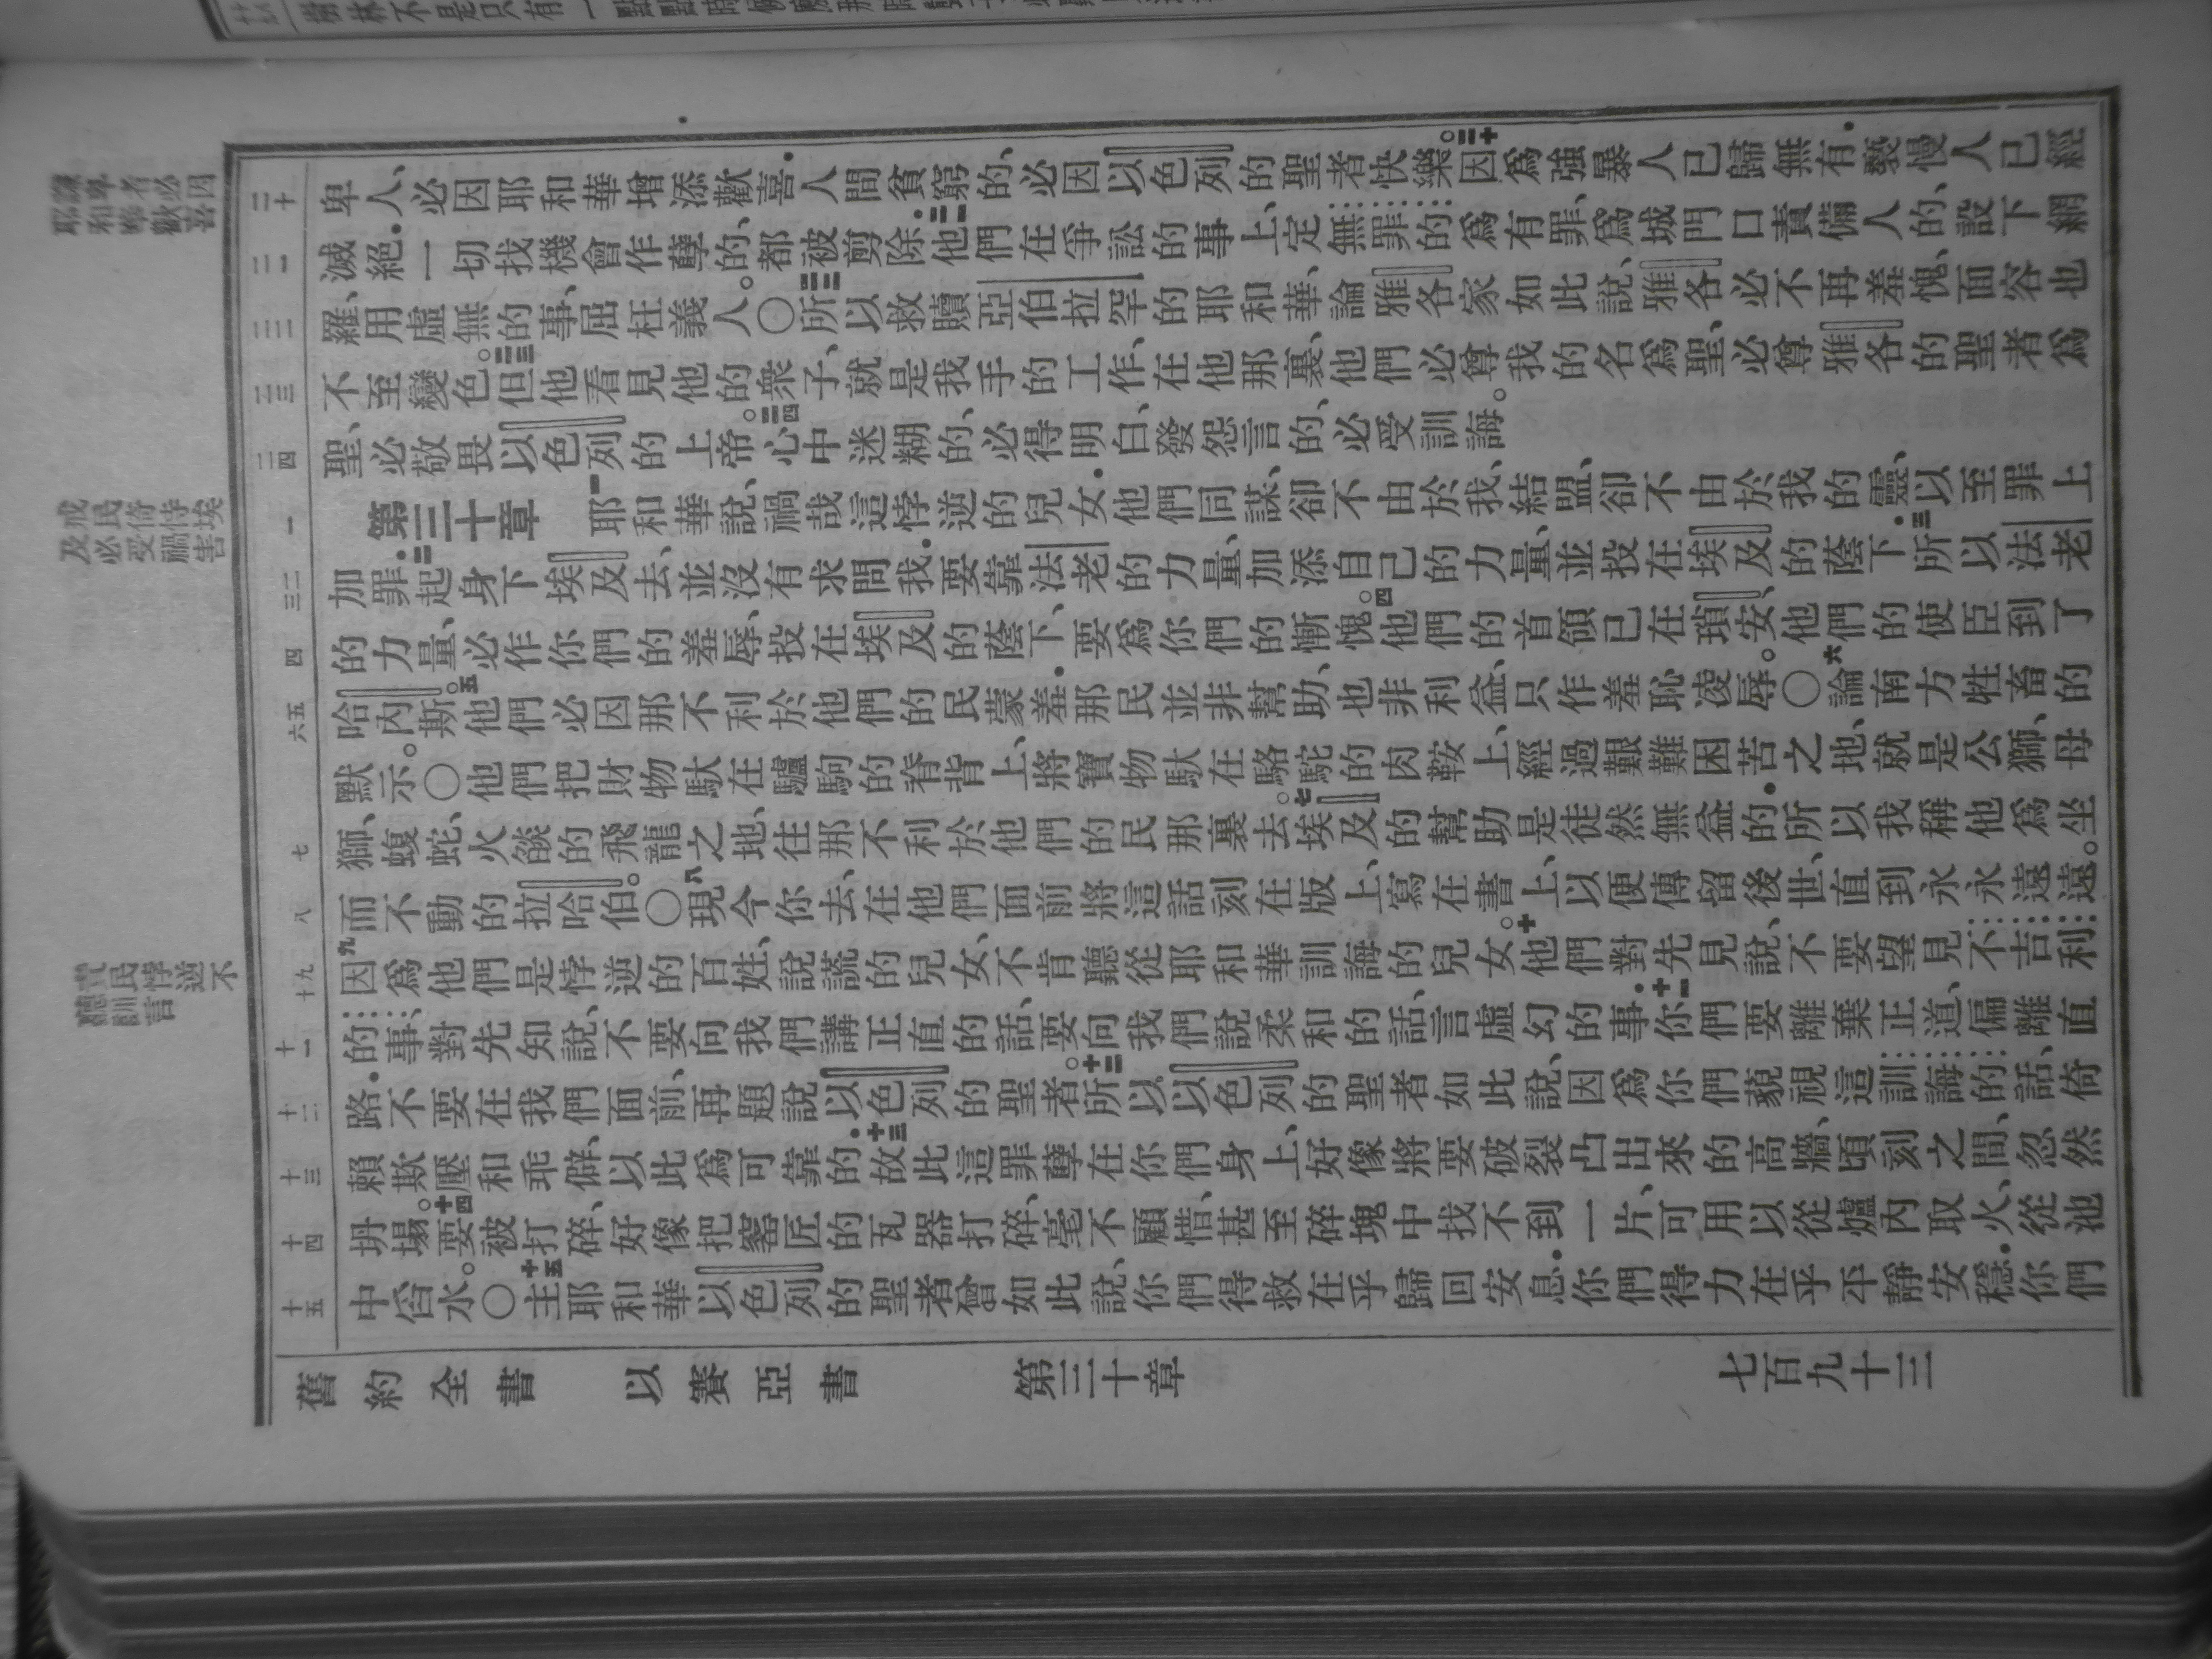 謙卑者必因
耶和華歡喜
戒民倚恃埃
及必受禍害
責民悖逆不
聽訓言
二十 卑人、必因耶和華增添歡喜．人間貧窮的、必因以色列的聖者快樂。二十因爲強暴人已歸無有．褻慢人已經
二一 滅絕．一切找機會作孽的、都被剪除．二一他們在爭訟的事上、定無罪的爲有罪、爲城門口責備人的、設下網
二二 羅、用虛無的事、屈枉義人。〇二二所以救贖亞伯拉罕的耶和華、論雅各家如此說、雅各必不再羞愧、面容也
二三 不至變色。二三但他看見他的衆子、就是我手的工作、在他那裏、他們必尊我的名爲聖、必尊雅各的聖者爲
二四 聖、必敬畏以色列的上帝。二四心中迷糊的、必得明白、發怨言的、必受訓誨。
一 第三十章 一耶和華說、禍哉這悖逆的兒女．他們同謀、卻不由於我、結盟、卻不由於我的靈、以至罪上
二三 加罪．二起身下埃及去、並沒有求問我．要靠法老的力量、加添自己的力量、並投在埃及的蔭下．三所以法老
四 的力量、必作你們的羞辱、投在埃及的蔭下、要爲你們的慚愧。四他們的首領已在瑣安、他們的使臣到了
五六 哈內斯。五他們必因那不利於他們的民蒙羞．那民並非幫助、也非利益、只作羞恥淩辱。〇六論南方牲畜的
默示。〇他們把財物馱在驢駒的脊背上、將寶物馱在駱駝的肉鞍上、經過艱難困苦之地、就是公獅、母
七 獅、蝮蛇、火燄的飛龍之地、往那不利於他們的民那裏去。七埃及的幫助是徒然無益的．所以我稱他爲坐
八 而不動的拉哈伯。〇八現今你去、在他們面前將這話刻在版上、寫在書上、以便傳留後世、直到永永遠遠。
九十 九因爲他們是悖逆的百姓、說謊的兒女、不肯聽從耶和華訓誨的兒女。十他們對先見說、不要望見不吉利
十一 的事、對先知說、不要向我們講正直的話、要向我們說柔和的話、言虛幻的事．十一你們要離棄正道、偏離直
十二 路．不要在我們面前、再題說以色列的聖者。十二所以以色列的聖者如此說、因爲你們藐視這訓誨的話、倚
十三 賴欺壓和乖僻、以此爲可靠的．十三故此這罪孽在你們身上、好像將要破裂凸出來的高牆、頃刻之間、忽然
十四 坍塌。十四要被打碎、好像把窰匠的瓦器打碎、毫不顧惜、甚至碎塊中找不到一片、可用以從爐內取火、從池
十五 中舀水。〇十五主耶和華以色列的聖者曾如此說、你們得救在乎歸回安息．你們得力在乎平靜安穩．你們
舊約全書 以賽亞書 第三十章 七百九十三